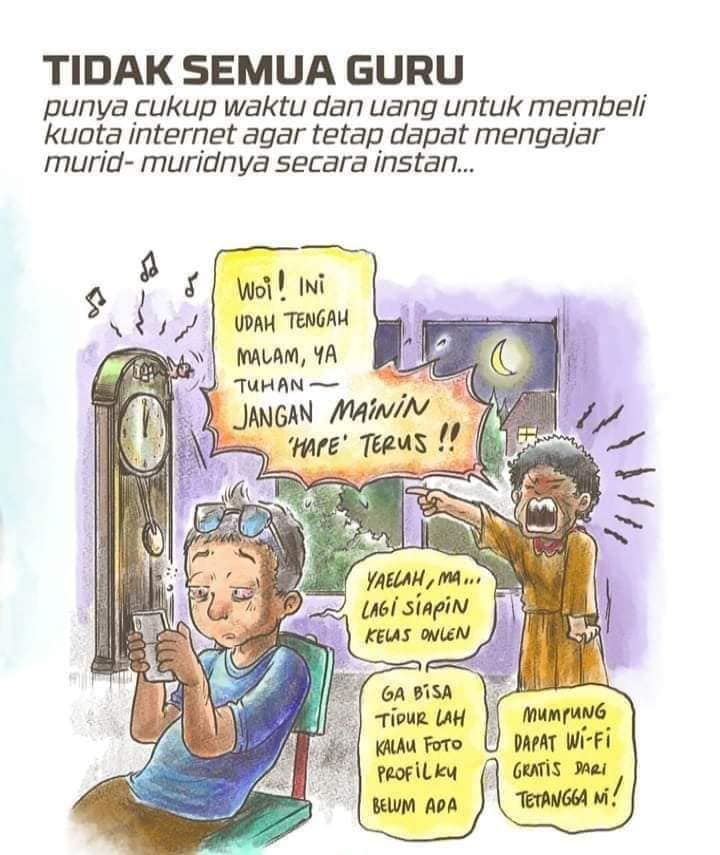 TIDAK SEMUA GURU
punya cukup waktu dan uang untuk membeli
kuota internet agar tetap dapat mengajar
murid- muridnya secara instan...
Woi! INI
UDAH TENGAH
MALAM, YA
TUHAN —
JANGAN MAININ
'HAPE' TERUS !!
YAELAH, MA...
LAGI SIAPIN
KELAS ONLEN
GA BISA
TIDUR LAH
KALAU FOTO
PROFILKU
BELUM ADA
MUMPUNG
DAPAT Wi-Fi
GRATIS DARI
TETANGGA Ni!